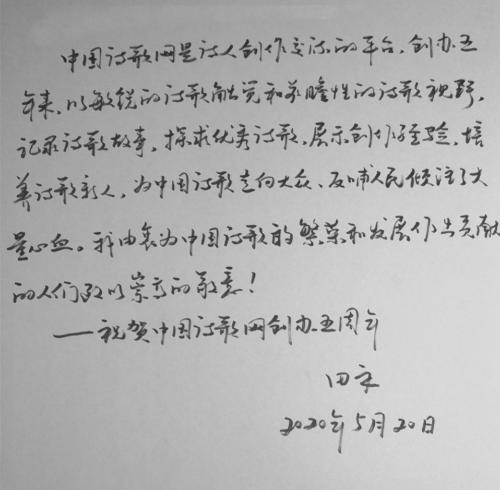 中国诗歌网是诗人创作交流的平台，创办五
年来，以敏锐的诗歌触觉和前瞻性的诗歌视野，
记录诗歌故事，探求优秀诗歌，展示创作经验，培
养诗歌新人，为中国诗歌走向大众、反哺人民倾注了大
量心血。我由衷为中国诗歌的繁荣和发展作出贡献
的人们致以崇高的敬意！
——祝贺中国诗歌网创办五周年
田禾
2020年5月20日